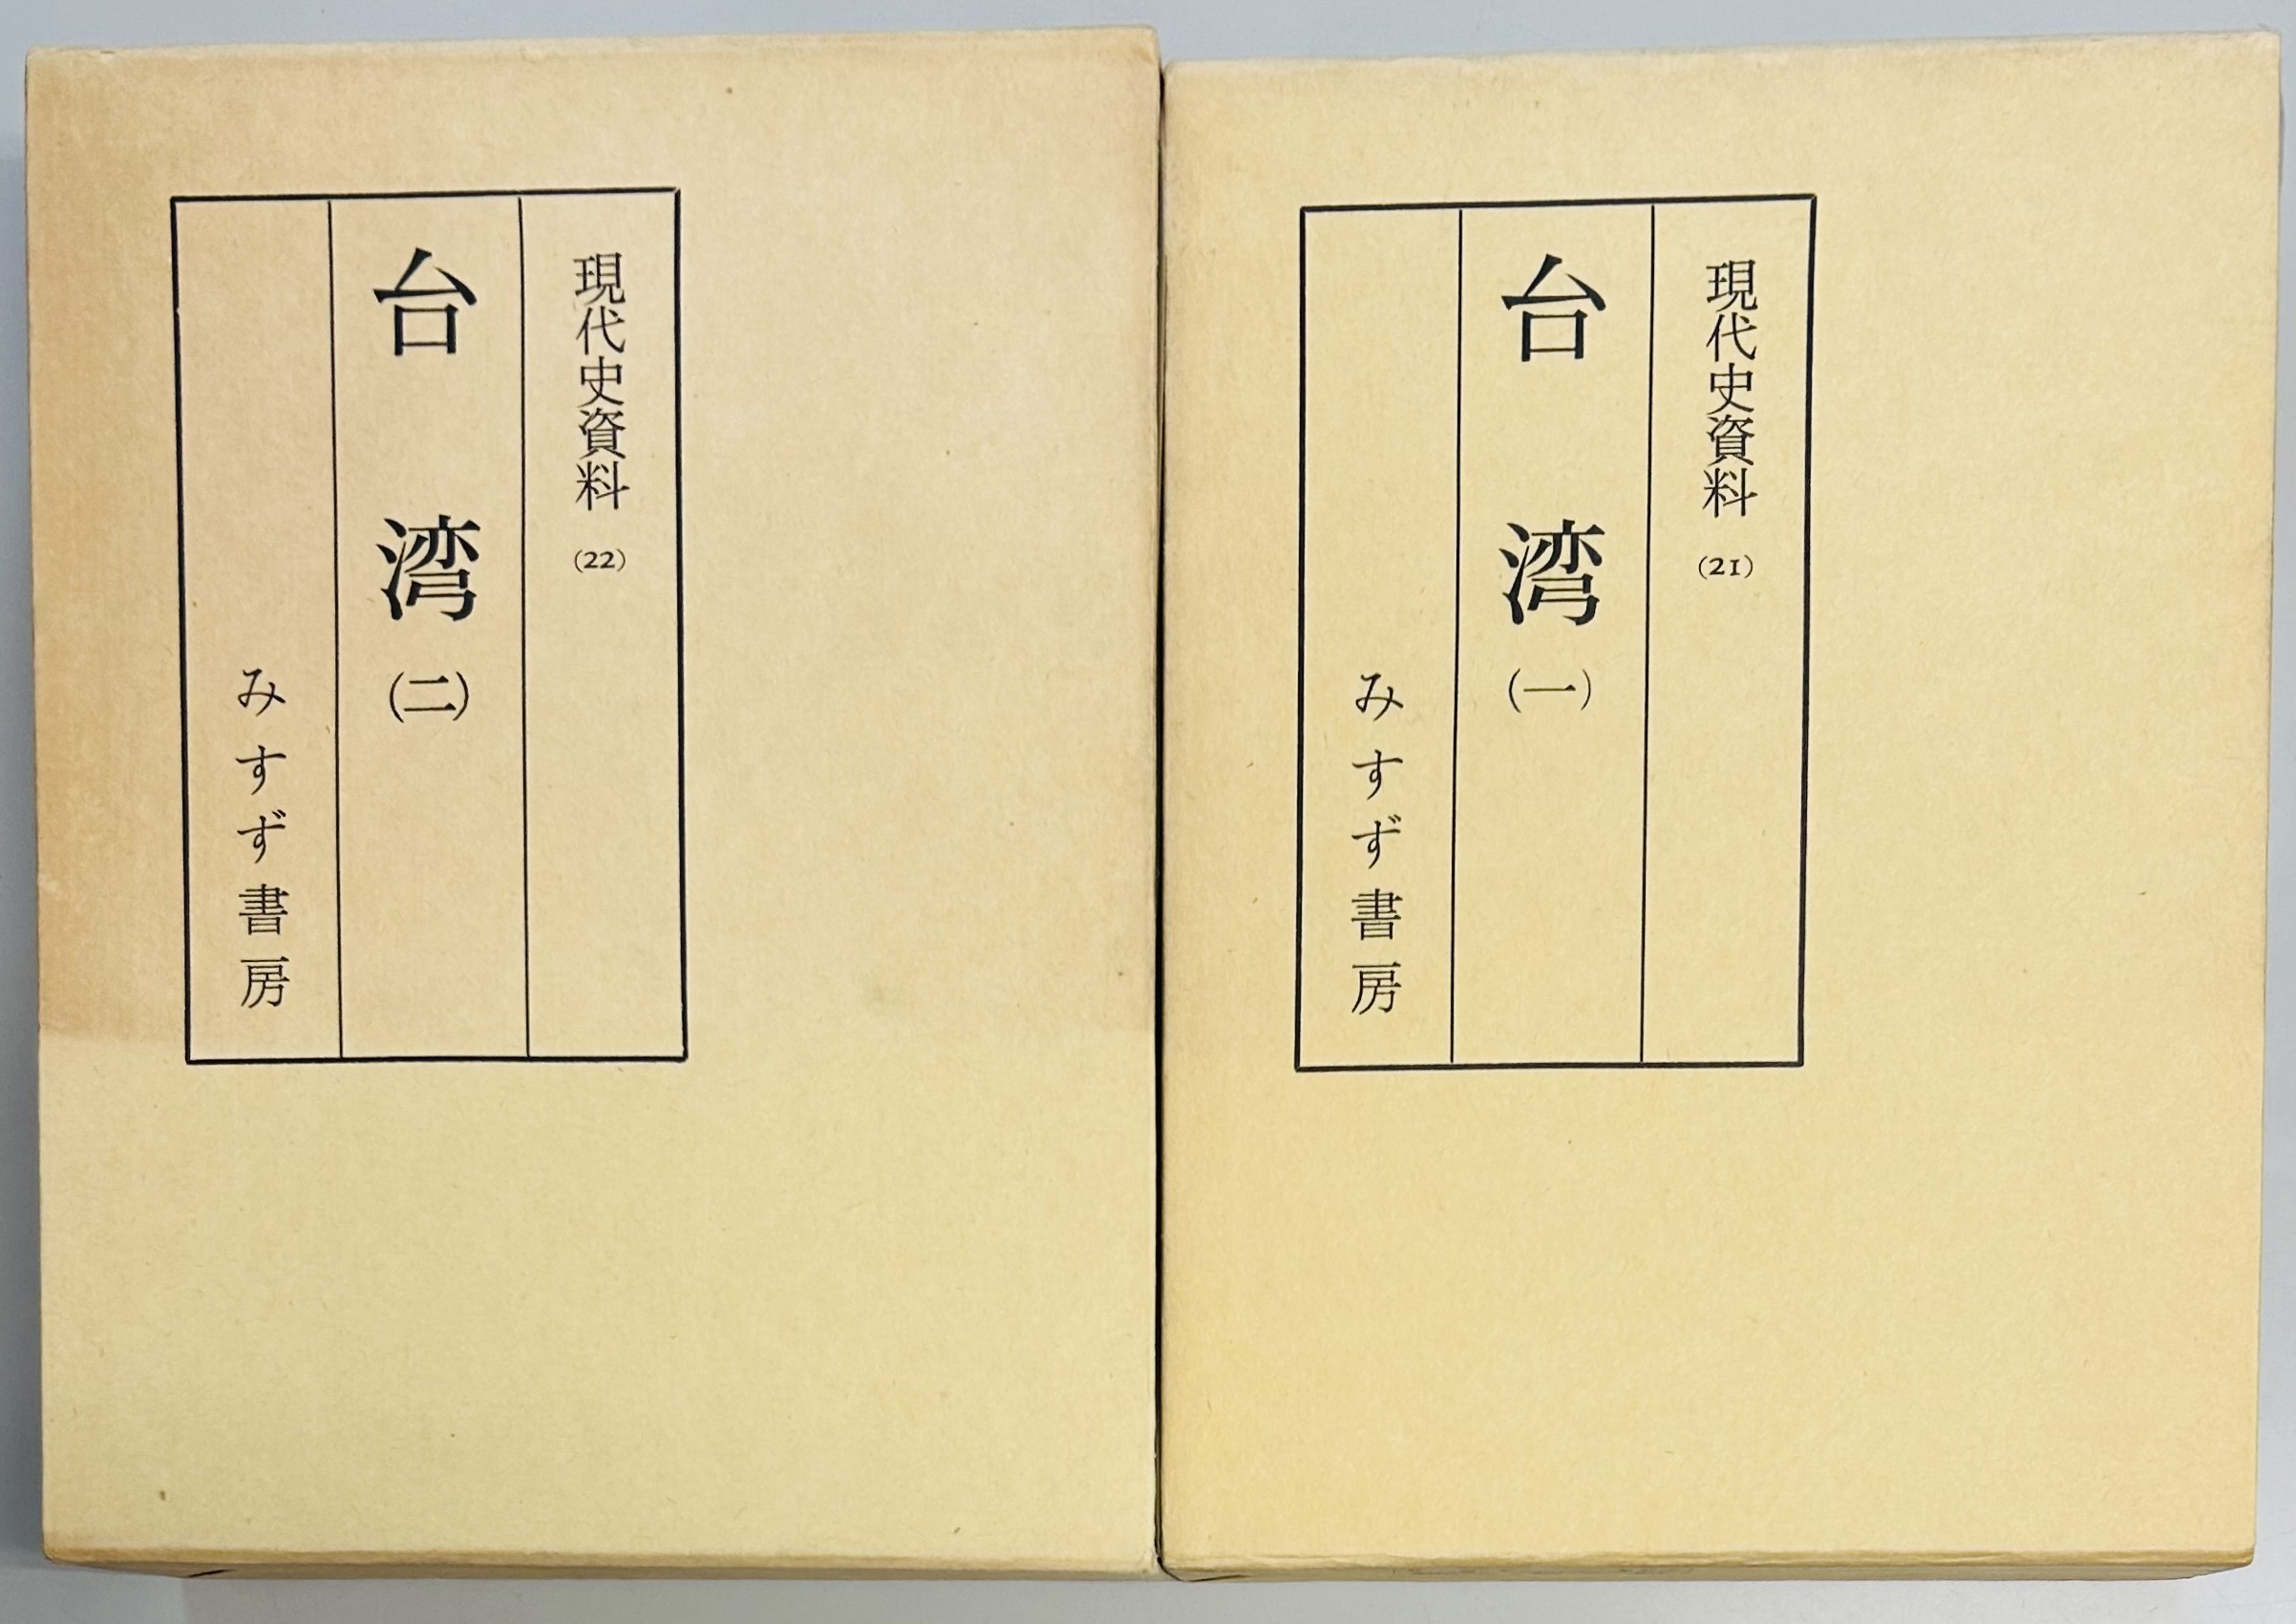 現代史資料 (21)
台湾 (一)
みすず書房
現代史資料 (22)
台湾 (二)
みすず書房